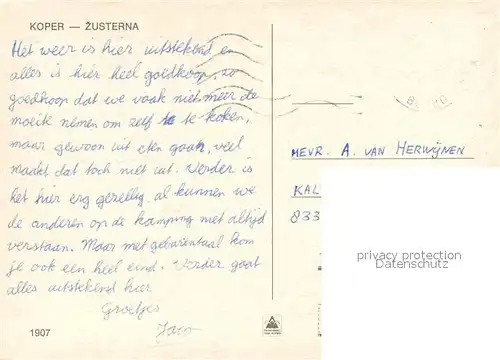 KOPER — ŽUSTERNA
Het weer is hier uitstekend en
alles is hier heel goedkoop, zo
goedkoop dat we vaak niet meer de
moeite nemen om zelf te koken,
maar gewoon uit eten gaan, veel
maakt dat toch niet uit. Verder is
het hier erg gezellig, al kunnen we
de anderen op de kamping niet altijd
verstaan. Maar met gebarentaal kom
je ook een heel eind. Verder gaat
alles uitstekend hier
Groetjes
Jaco
1907
MEVR. A. VAN HERWIJNEN
KAL
833
privacy protection
Datenschutz